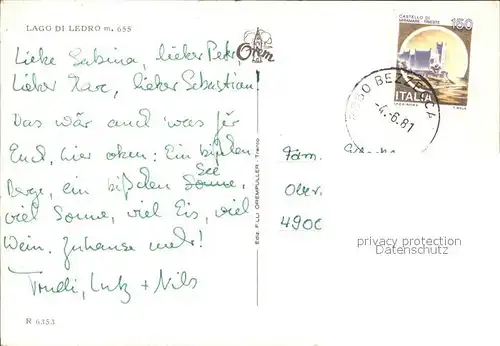 LAGO DI LEDRO m. 655
Liebe Sabina, lieber Peter,
lieber Marc, lieber Sebastian!
Das wär auch was für
Euch, hier oben: Ein bißchen
Berge, ein bißchen Sonne, See
viel Sonne, viel Eis, viel
Wein. Zuhause mehr!
Trudi, Lutz + Nils
R 6353
Orem
Ediz. F.LLI OREMPULLER - Trento
CASTELLO DI
MIRAMARE - TRIESTE
150
ITALIA
BEZZECCA
-4.-6.81
Fam.
Ober
490
privacy protection
Datenschutz